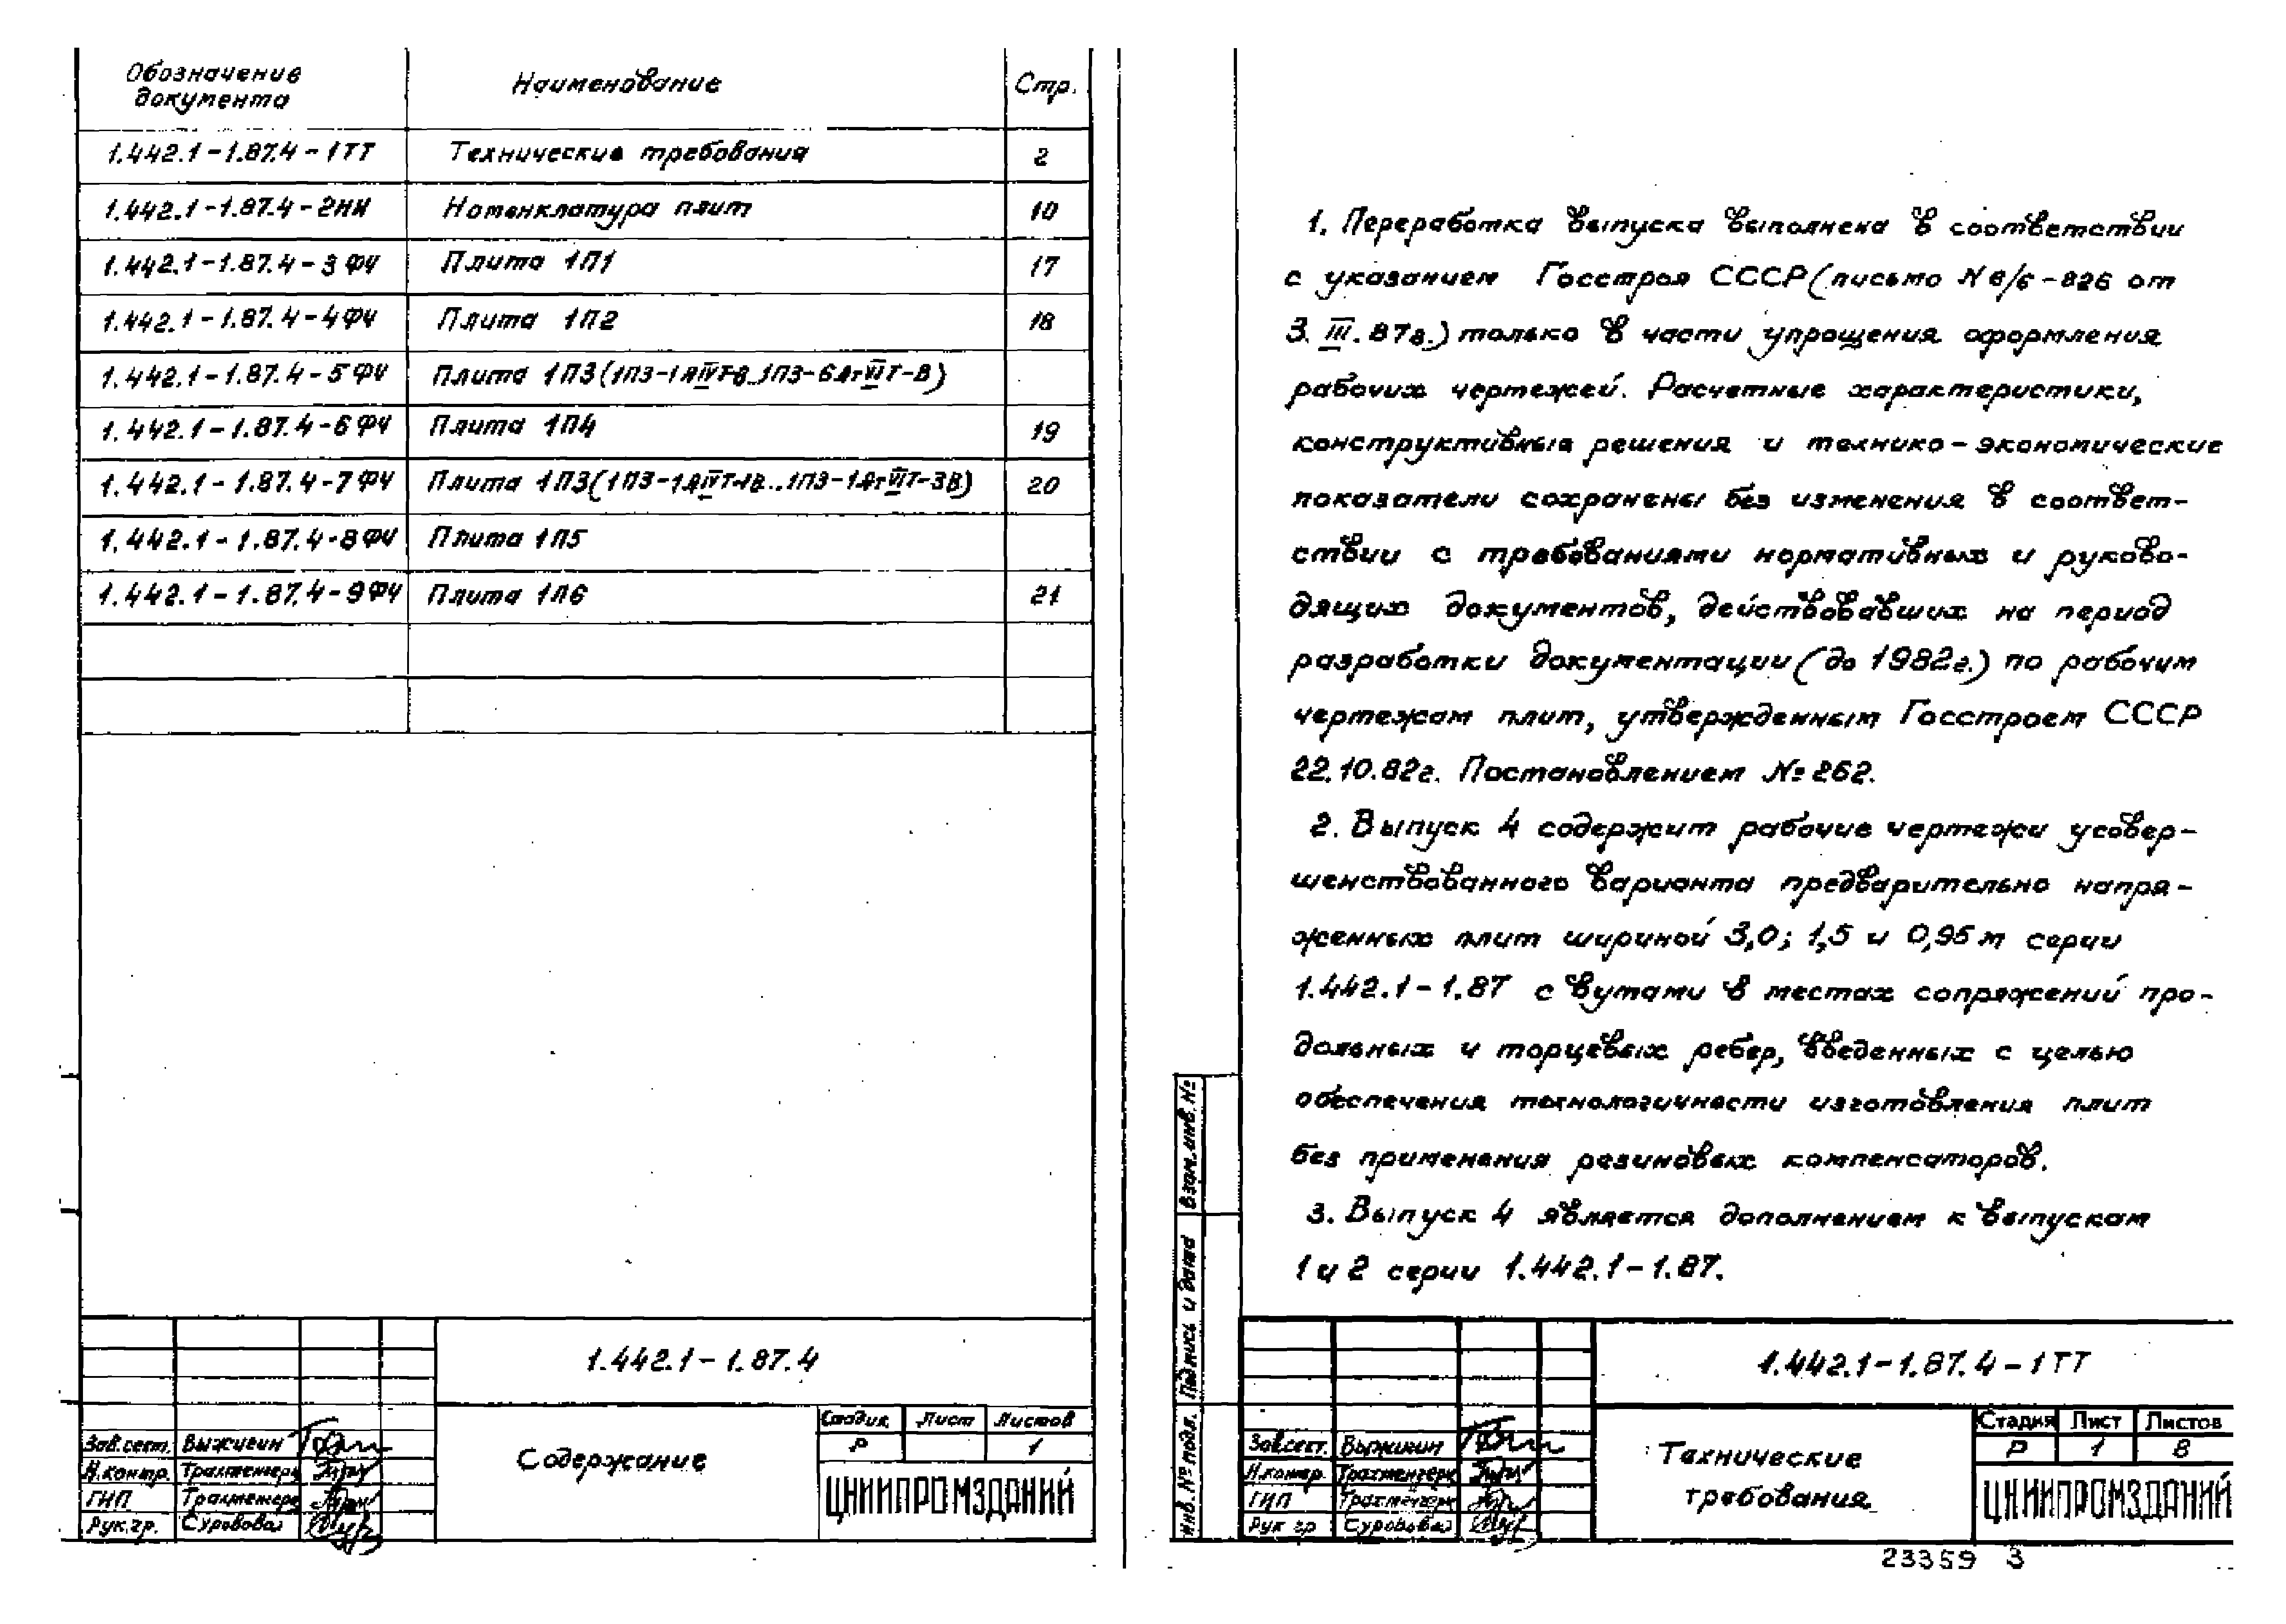 Обозначение документа Наименование Стр.
1.442.1-1.87.4-1ТТ Технические требования 2
1.442.1-1.87.4-2НИ Номенклатура плит 10
1.442.1-1.87.4-3ФЧ Плита 1П1 17
1.442.1-1.87.4-4ФЧ Плита 1П2 18
1.442.1-1.87.4-5ФЧ Плита 1П3 (1П3-1АIVТ-В...1П3-6АтVIТ-В)
1.442.1-1.87.4-6ФЧ Плита 1П4 19
1.442.1-1.87.4-7ФЧ Плита 1П3 (1П3-1АIVТ-1В...1П3-1АтVIТ-3В) 20
1.442.1-1.87.4-8ФЧ Плита 1П5
1.442.1-1.87.4-9ФЧ Плита 1П6 21
1.442.1-1.87.4
Содержание
Стадия Лист Листов
Р 1
ЦНИИПРОМЗДАНИЙ
Зав.сект. Выжигин
Н.контр. Трахтенгерц
ГИП Трахтенгерц
Рук.гр. Суровова
1. Переработка выпуска выполнена в соответствии
с указанием Госстроя СССР (письмо N 6/6-826 от
3.III.87г.) только в части упрощения оформления
рабочих чертежей. Расчетные характеристики,
конструктивные решения и технико-экономические
показатели сохранены без изменения в соответ-
ствии с требованиями нормативных и руково-
дящих документов, действовавших на период
разработки документации (до 1982г.) по рабочим
чертежам плит, утвержденным Госстроем СССР
22.10.82г. Постановлением № 262.
2. Выпуск 4 содержит рабочие чертежи усовер-
шенствованного варианта предварительно напря-
женных плит шириной 3,0; 1,5 и 0,95 м серии
1.442.1-1.87 с вутами в местах сопряжений про-
дольных и торцевых ребер, введенных с целью
обеспечения технологичности изготовления плит
без применения резиновых компенсаторов.
3. Выпуск 4 является дополнением к выпускам
1 и 2 серии 1.442.1-1.87.
Взам.инв.№
Подпись и дата
Инв.№ подл.
1.442.1-1.87.4-1ТТ
Технические
требования
Стадия Лист Листов
Р 1 8
ЦНИИПРОМЗДАНИЙ
Зав.сект. Выжигин
Н.контр. Трахтенгерц
ГИП Трахтенгерц
Рук гр Суровова
23359 3